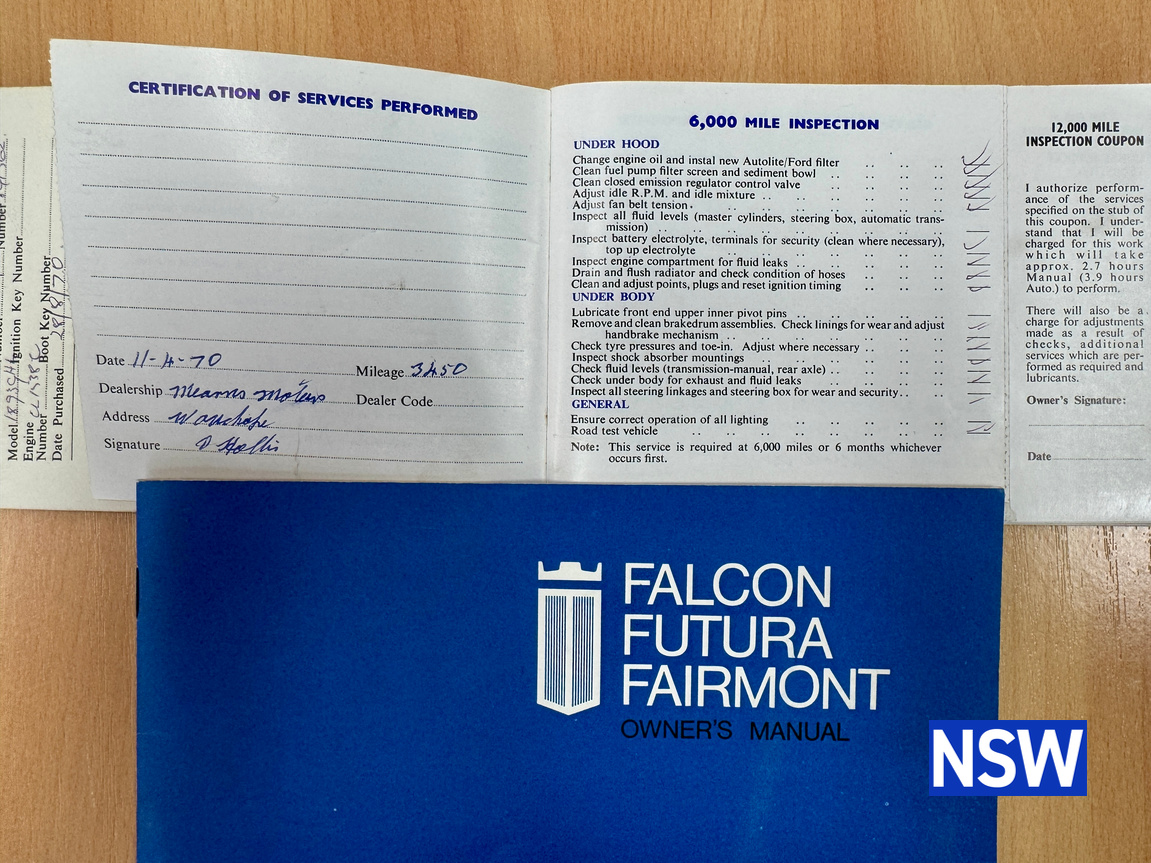 Number
Model
Ignition Key Number
Engine
Number
Boot Key Number
Date Purchased 28/8/70
CERTIFICATION OF SERVICES PERFORMED
Date 11-4-70 Mileage 3450
Dealership Mearns Motors Dealer Code
Address Wauchope
Signature D Hollis
6,000 MILE INSPECTION
UNDER HOOD
Change engine oil and instal new Autolite/Ford filter
Clean fuel pump filter screen and sediment bowl
Clean closed emission regulator control valve
Adjust idle R.P.M. and idle mixture
Adjust fan belt tension
Inspect all fluid levels (master cylinders, steering box, automatic trans-
mission)
Inspect battery electrolyte, terminals for security (clean where necessary),
top up electrolyte
Inspect engine compartment for fluid leaks
Drain and flush radiator and check condition of hoses
Clean and adjust points, plugs and reset ignition timing
UNDER BODY
Lubricate front end upper inner pivot pins
Remove and clean brakedrum assemblies. Check linings for wear and adjust
handbrake mechanism
Check tyre pressures and toe-in. Adjust where necessary
Inspect shock absorber mountings
Check fluid levels (transmission-manual, rear axle)
Check under body for exhaust and fluid leaks
Inspect all steering linkages and steering box for wear and security
GENERAL
Ensure correct operation of all lighting
Road test vehicle
Note: This service is required at 6,000 miles or 6 months whichever
occurs first.
12,000 MILE
INSPECTION COUPON
I authorize perform-
ance of the services
specified on the stub of
this coupon. I under-
stand that I will be
charged for this work
which will take
approx. 2.7 hours
Manual (3.9 hours
Auto.) to perform.
There will also be a
charge for adjustments
made as a result of
checks, additional
services which are per-
formed as required and
lubricants.
Owner's Signature:
Date
FALCON
FUTURA
FAIRMONT
OWNER'S MANUAL
NSW